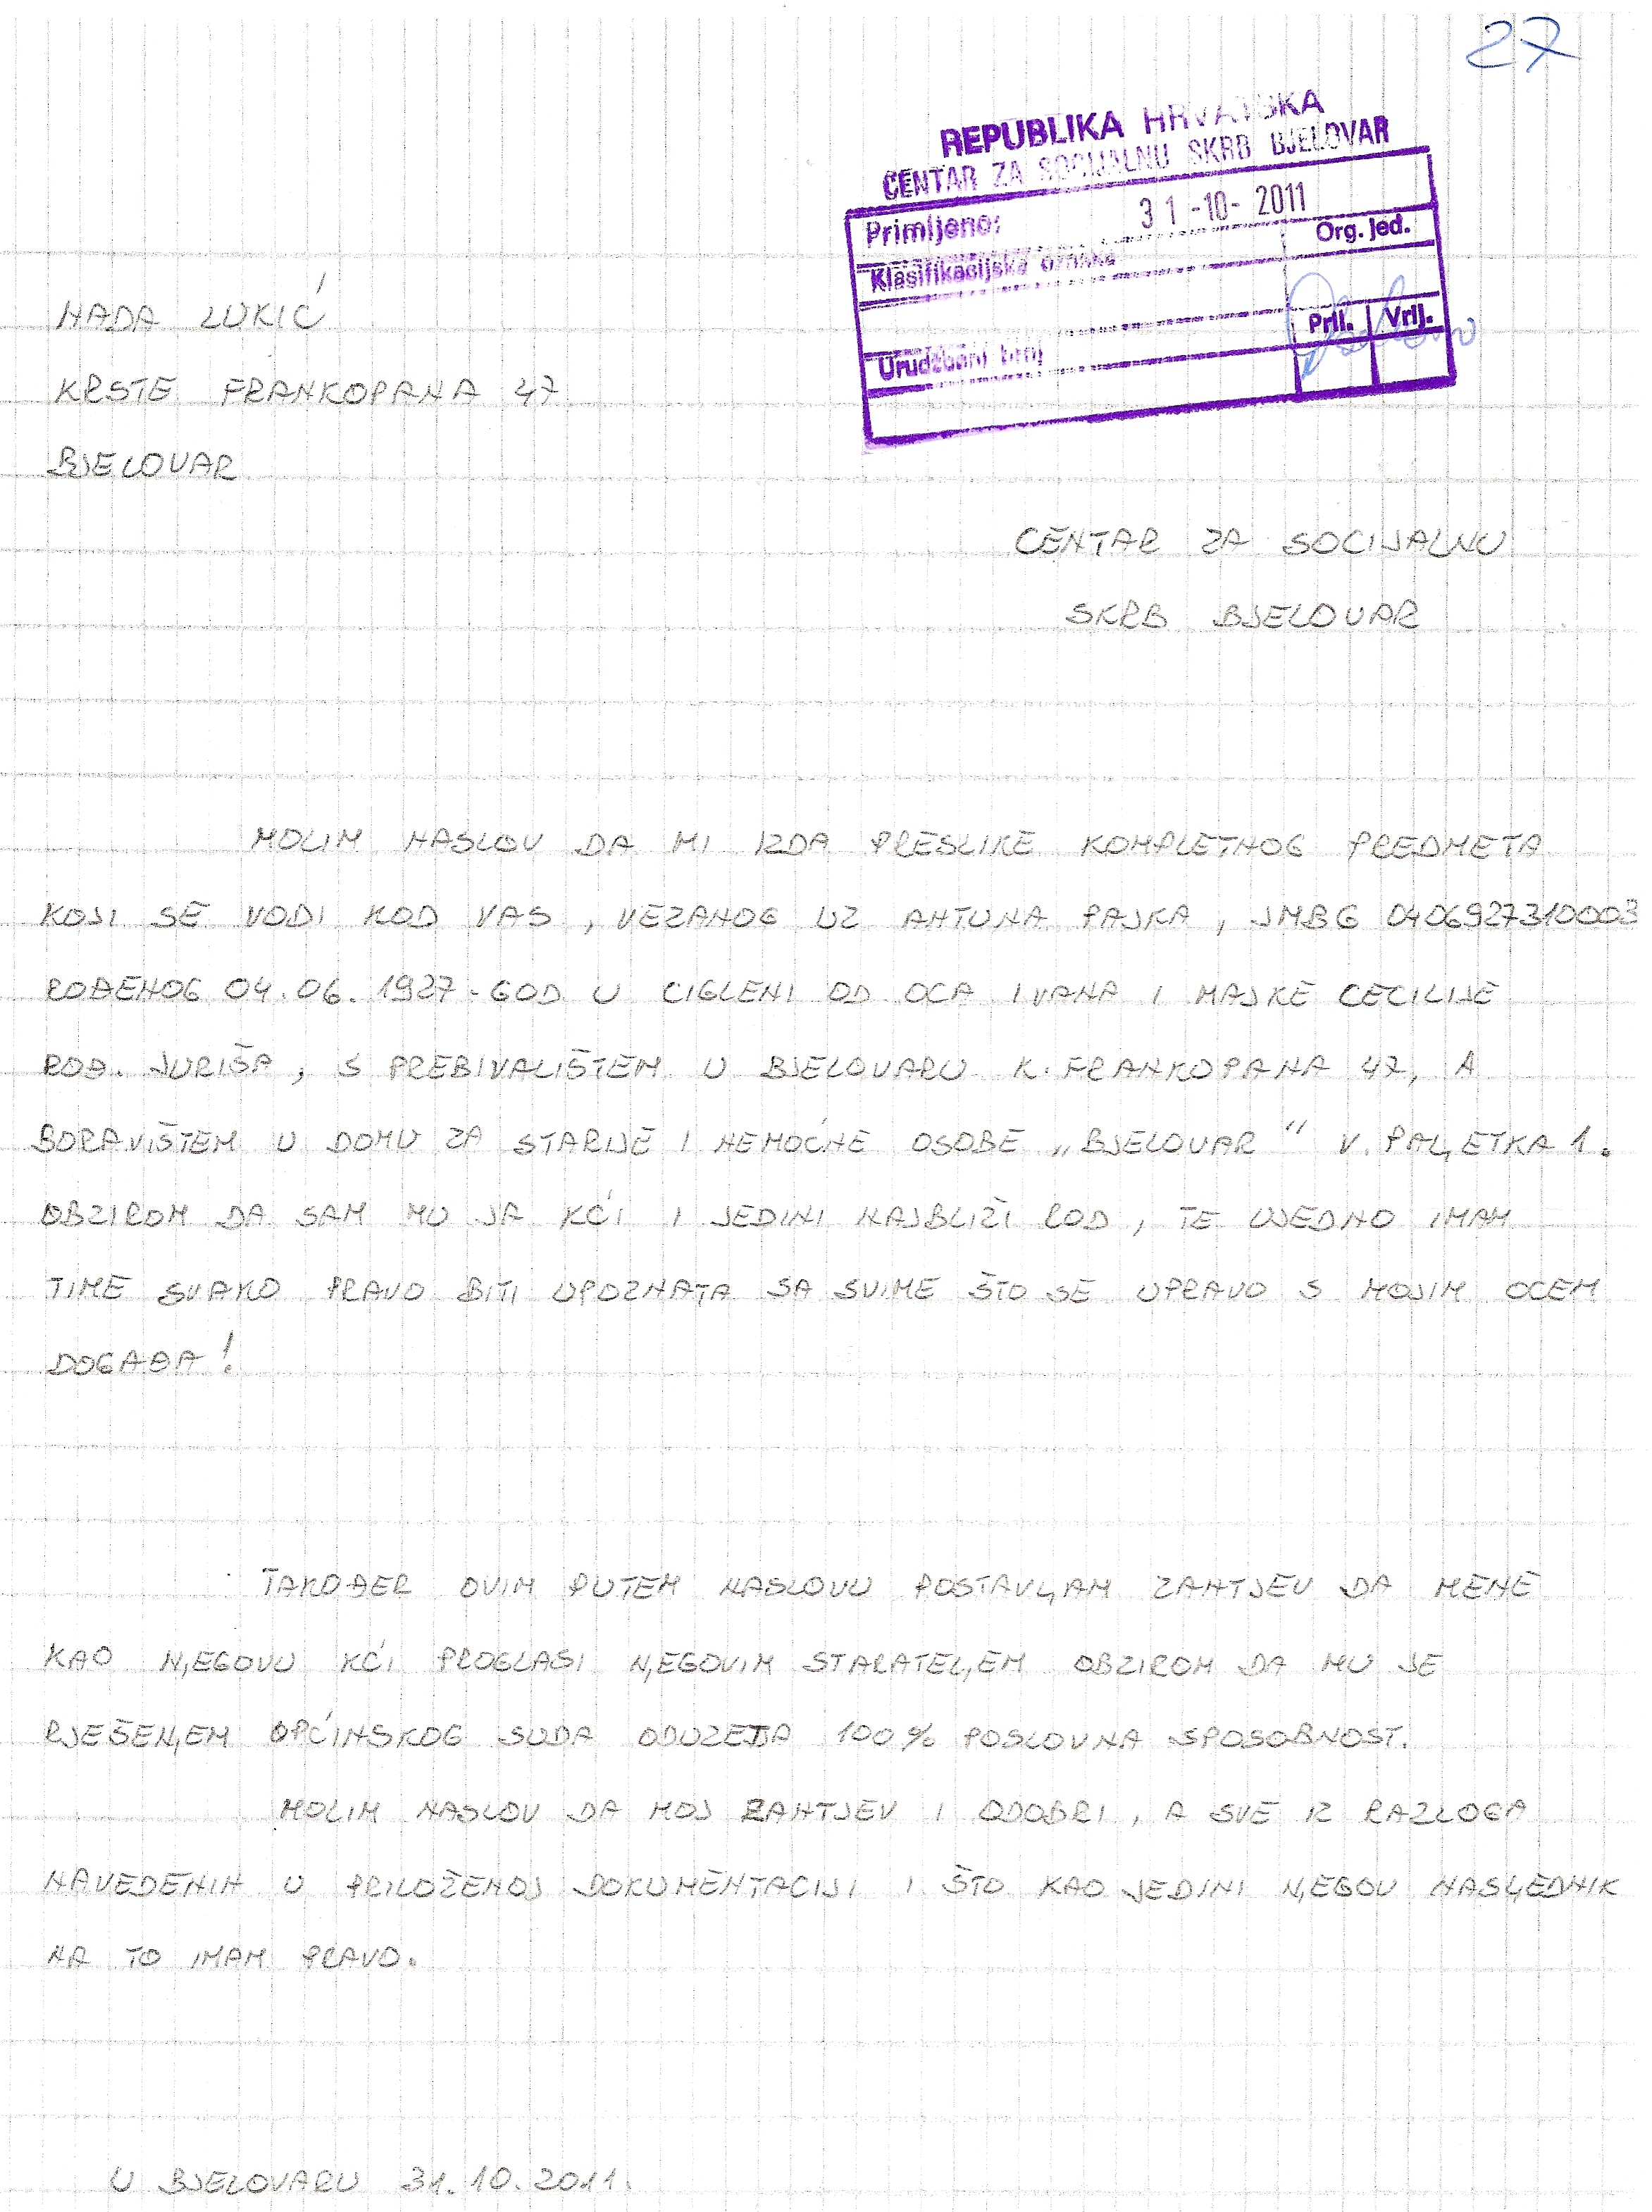 27
REPUBLIKA HRVATSKA
CENTAR ZA SOCIJALNU SKRB BJELOVAR
Primljeno: 31-10-2011
Klasifikacijska oznaka Org. jed.
Urudžbeni broj Pril. Vrij.
NADA LUKIĆ
KRSTE FRANKOPANA 47
BJELOVAR
CENTAR ZA SOCIJALNU
SKRB BJELOVAR
MOLIM NASLOV DA MI IZDA PRESLIKE KOMPLETNOG PREDMETA
KOJI SE VODI KOD VAS, VEZANOG UZ ANTUNA PAJKA, JMBG 0406927310003
ROĐENOG 04.06.1927. GOD U CIGLENI OD OCA IVANA I MAJKE CECILIJE
ROĐ. JURIŠA, S PREBIVALIŠTEM U BJELOVARU K. FRANKOPANA 47, A
BORAVIŠTEM U DOMU ZA STARIJE I NEMOĆNE OSOBE „BJELOVAR" V. PALJETKA 1.
OBZIROM DA SAM MU JA KĆI I JEDINI NAJBLIŽI ROD, TE UJEDNO IMAM
TIME SVAKO PRAVO BITI UPOZNATA SA SVIME ŠTO SE UPRAVO S MOJIM OCEM
DOGAĐA!
TAKOĐER OVIM PUTEM NASLOVU POSTAVLJAM ZAHTJEV DA MENE
KAO NJEGOVU KĆI PROGLASI NJEGOVIM STARATELJEM OBZIROM DA MU JE
RJEŠENJEM OPĆINSKOG SUDA ODUZETA 100% POSLOVNA SPOSOBNOST.
MOLIM NASLOV DA MOJ ZAHTJEV I ODOBRI, A SVE IZ RAZLOGA
NAVEDENIH U PRILOŽENOJ DOKUMENTACIJI I ŠTO KAO JEDINI NJEGOV NASLJEDNIK
NA TO IMAM PRAVO.
U BJELOVARU 31.10.2011.